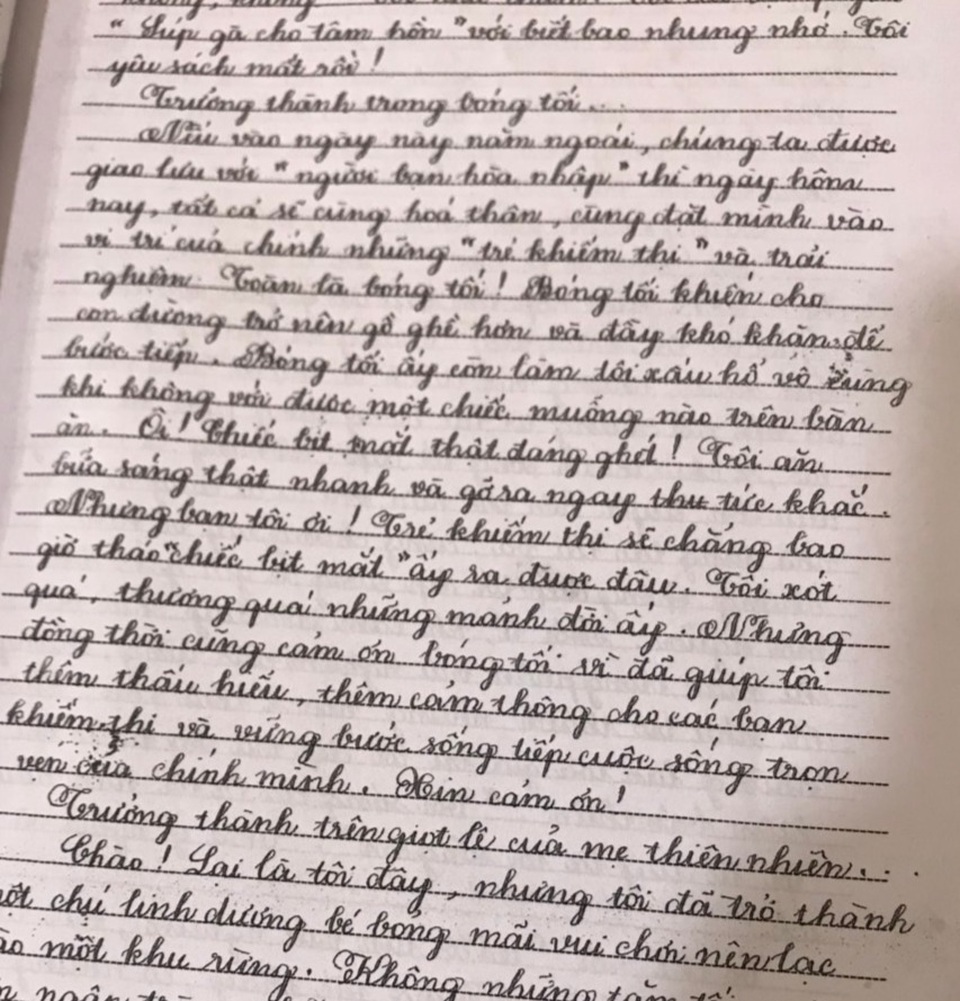 "Súp gà cho tâm hồn" với biết bao nhung nhớ. Tôi
yêu sách mất rồi!
Trưởng thành trong bóng tối...
Nếu vào ngày này năm ngoái, chúng ta được
giao lưu với "người bạn hòa nhập" thì ngày hôm
nay, tất cả sẽ cùng hoá thân, cùng đặt mình vào
vị trí của chính những "trẻ khiếm thị" và trải
nghiệm. Toàn là bóng tối! Bóng tối khiến cho
con đường trở nên gồ ghề hơn và đầy khó khăn để
bước tiếp. Bóng tối ấy còn làm tôi xấu hổ vô cùng
khi không với được một chiếc muỗng nào trên bàn
ăn. Ôi! Chiếc bịt mắt thật đáng ghét! Tôi ăn
bữa sáng thật nhanh và gỡ ra ngay tức khắc.
Nhưng bạn tôi ơi! Trẻ khiếm thị sẽ chẳng bao
giờ tháo "chiếc bịt mắt" ấy ra được đâu. Tôi xót
quá, thương quá những mảnh đời ấy. Nhưng
đồng thời cũng cảm ơn bóng tối vì đã giúp tôi
thêm thấu hiểu, thêm cảm thông cho các bạn
khiếm thị và vững bước sống tiếp cuộc sống trọn
vẹn của chính mình. Xin cảm ơn!
Trưởng thành trên giọt lệ của mẹ thiên nhiên...
Chào! Lại là tôi đây, nhưng tôi đã trở thành
chú linh dương bé bỏng mãi vui chơi nên lạc
một khu rừng. Không những